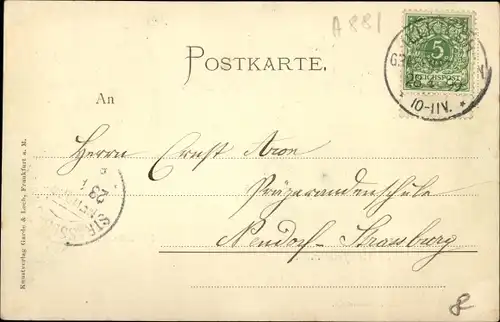 A881
POSTKARTE.
5
REICHSPOST
10-11V.
An
Herrn Ernst Aron
Präparandenschule
Neudorf-Strassburg
Kunstverlag Garde & Loeb, Frankfurt a. M.
8